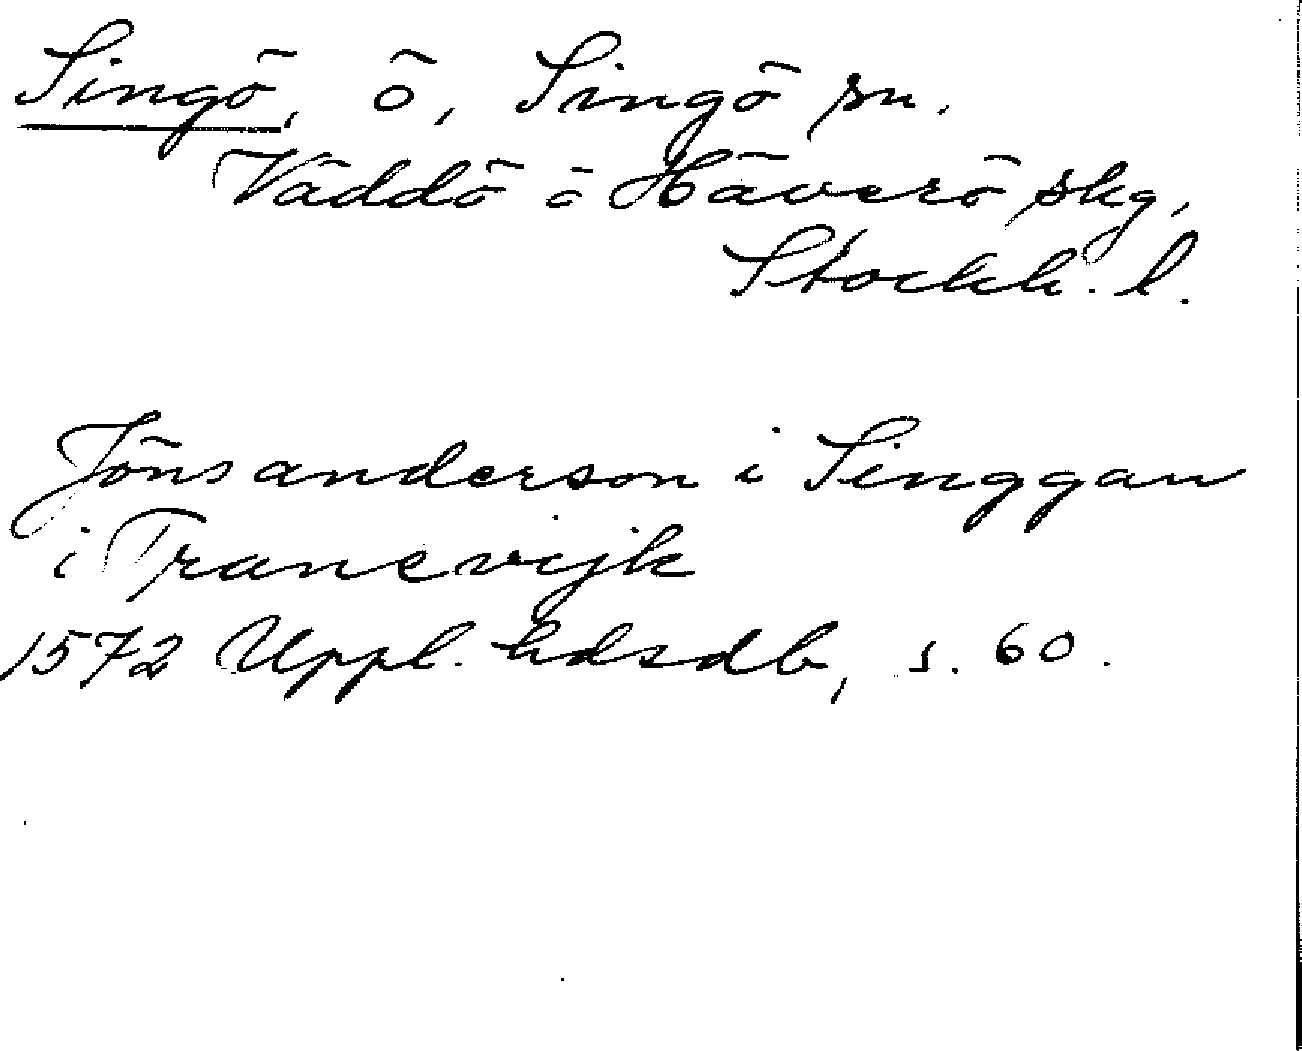 Singö, ö, Singö sn.
Väddö o Häverö skg,
Stockh. l.
Jönsanderson i Singgan
i Tranevijk
1572 Uppl. hdsdb, s. 60.